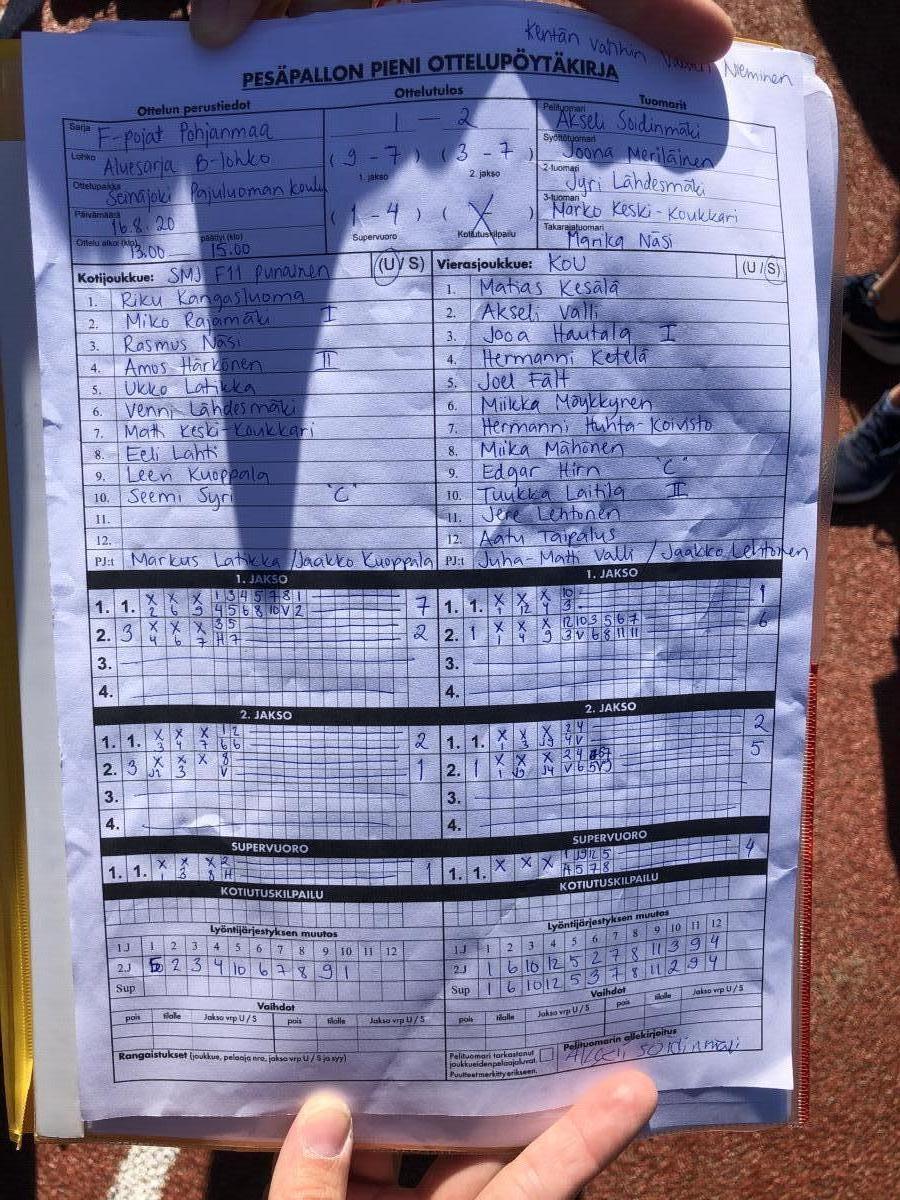 Kentän vanhin Nieminen
PESÄPALLON PIENI OTTELUPÖYTÄKIRJA
Ottelun perustiedot
Ottelutulos
Tuomarit
Sarja F-pojat Pohjanmaa
Lohko Aluesarja B-lohko
Ottelupaikka Seinäjoki Pajuluoman koulu
Päivämäärä 16.8.20
Ottelu alkoi (klo) 13.00 päättyi (klo) 15.00
1 - 2
(9 - 7) (3 - 7)
1. jakso 2. jakso
(1 - 4) ( X )
Supervuoro Kotiutuskilpailu
Pelituomari Akseli Soidinmäki
Syöttötuomari Joona Meriläinen
2-tuomari Jyri Lähdesmäki
3-tuomari Marko Keski-Koukkari
Takarajatuomari Marika Näsi
Kotijoukkue: SMJ F11 punainen (U/S)
1. Riku Kangasluoma
2. Miko Rajamäki I
3. Rasmus Näsi
4. Amos Härkönen II
5. Ukko Latikka
6. Venni Lähdesmäki
7. Matti Keski-Koukkari
8. Eeli Lahti
9. Leevi Kuoppala
10. Seemi Syri "C"
11.
12.
PJ:t Markus Latikka / Jaakko Kuoppala
Vierasjoukkue: KoU (U/S)
1. Matias Kesälä
2. Akseli Valli
3. Jooa Hautala I
4. Hermanni Ketelä
5. Joel Fält
6. Miikka Möykkynen
7. Hermanni Huhta-Koivisto
8. Miika Mähönen
9. Edgar Hirn "C"
10. Tuukka Laitila II
11. Jere Lehtonen
12. Aatu Taipalus
PJ:t Juha-Matti Valli / Jaakko Lehtonen
1. JAKSO
1. 1. X X X 1 3 4 5 7 8 1 7
2 6 9 4 5 6 8 10 V 2
2. 3 X X X 3 5 2
4 6 7 H 7
3.
4.
1. JAKSO
1. 1. X X X 10 1
1 12 4 3
2. 1 X X X 12 10 3 5 6 7 6
1 4 9 3 V 6 8 11 11
3.
4.
2. JAKSO
1. 1. X X X 1 2 2
3 4 7 6 6
2. 3 X X X 8 1
J2 3 V
3.
4.
2. JAKSO
1. 1. X X X 2 4 2
1 3 J9 4 V
2. 1 X X X 2 4 5
3.
4.
SUPERVUORO
1. 1. X X X 2 1
1 3 8 H
SUPERVUORO
1. 1. X X X 4
4 5 7 8
KOTIUTUSKILPAILU
KOTIUTUSKILPAILU
Lyöntijärjestyksen muutos
1J 1 2 3 4 5 6 7 8 9 10 11 12
2J 5 2 3 4 10 6 7 8 9 1
Sup
Lyöntijärjestyksen muutos
1J 1 2 3 4 5 6 7 8 9 10 11 12
2J 1 6 10 12 5 2 7 8 11 3 9 4
Sup 1 6 10 12 5 3 7 8 11 2 9 4
Vaihdot
pois tilalle Jakso vrp U / S pois tilalle Jakso vrp U / S
Vaihdot
pois tilalle Jakso vrp U / S pois tilalle Jakso vrp U / S
Rangaistukset (joukkue, pelaaja nro, jakso vrp U / S ja syy)
Pelituomari tarkastanut
joukkueiden pelaajaluvat.
Puutteet merkitty erikseen.
Pelituomarin allekirjoitus
Akseli Soidinmäki